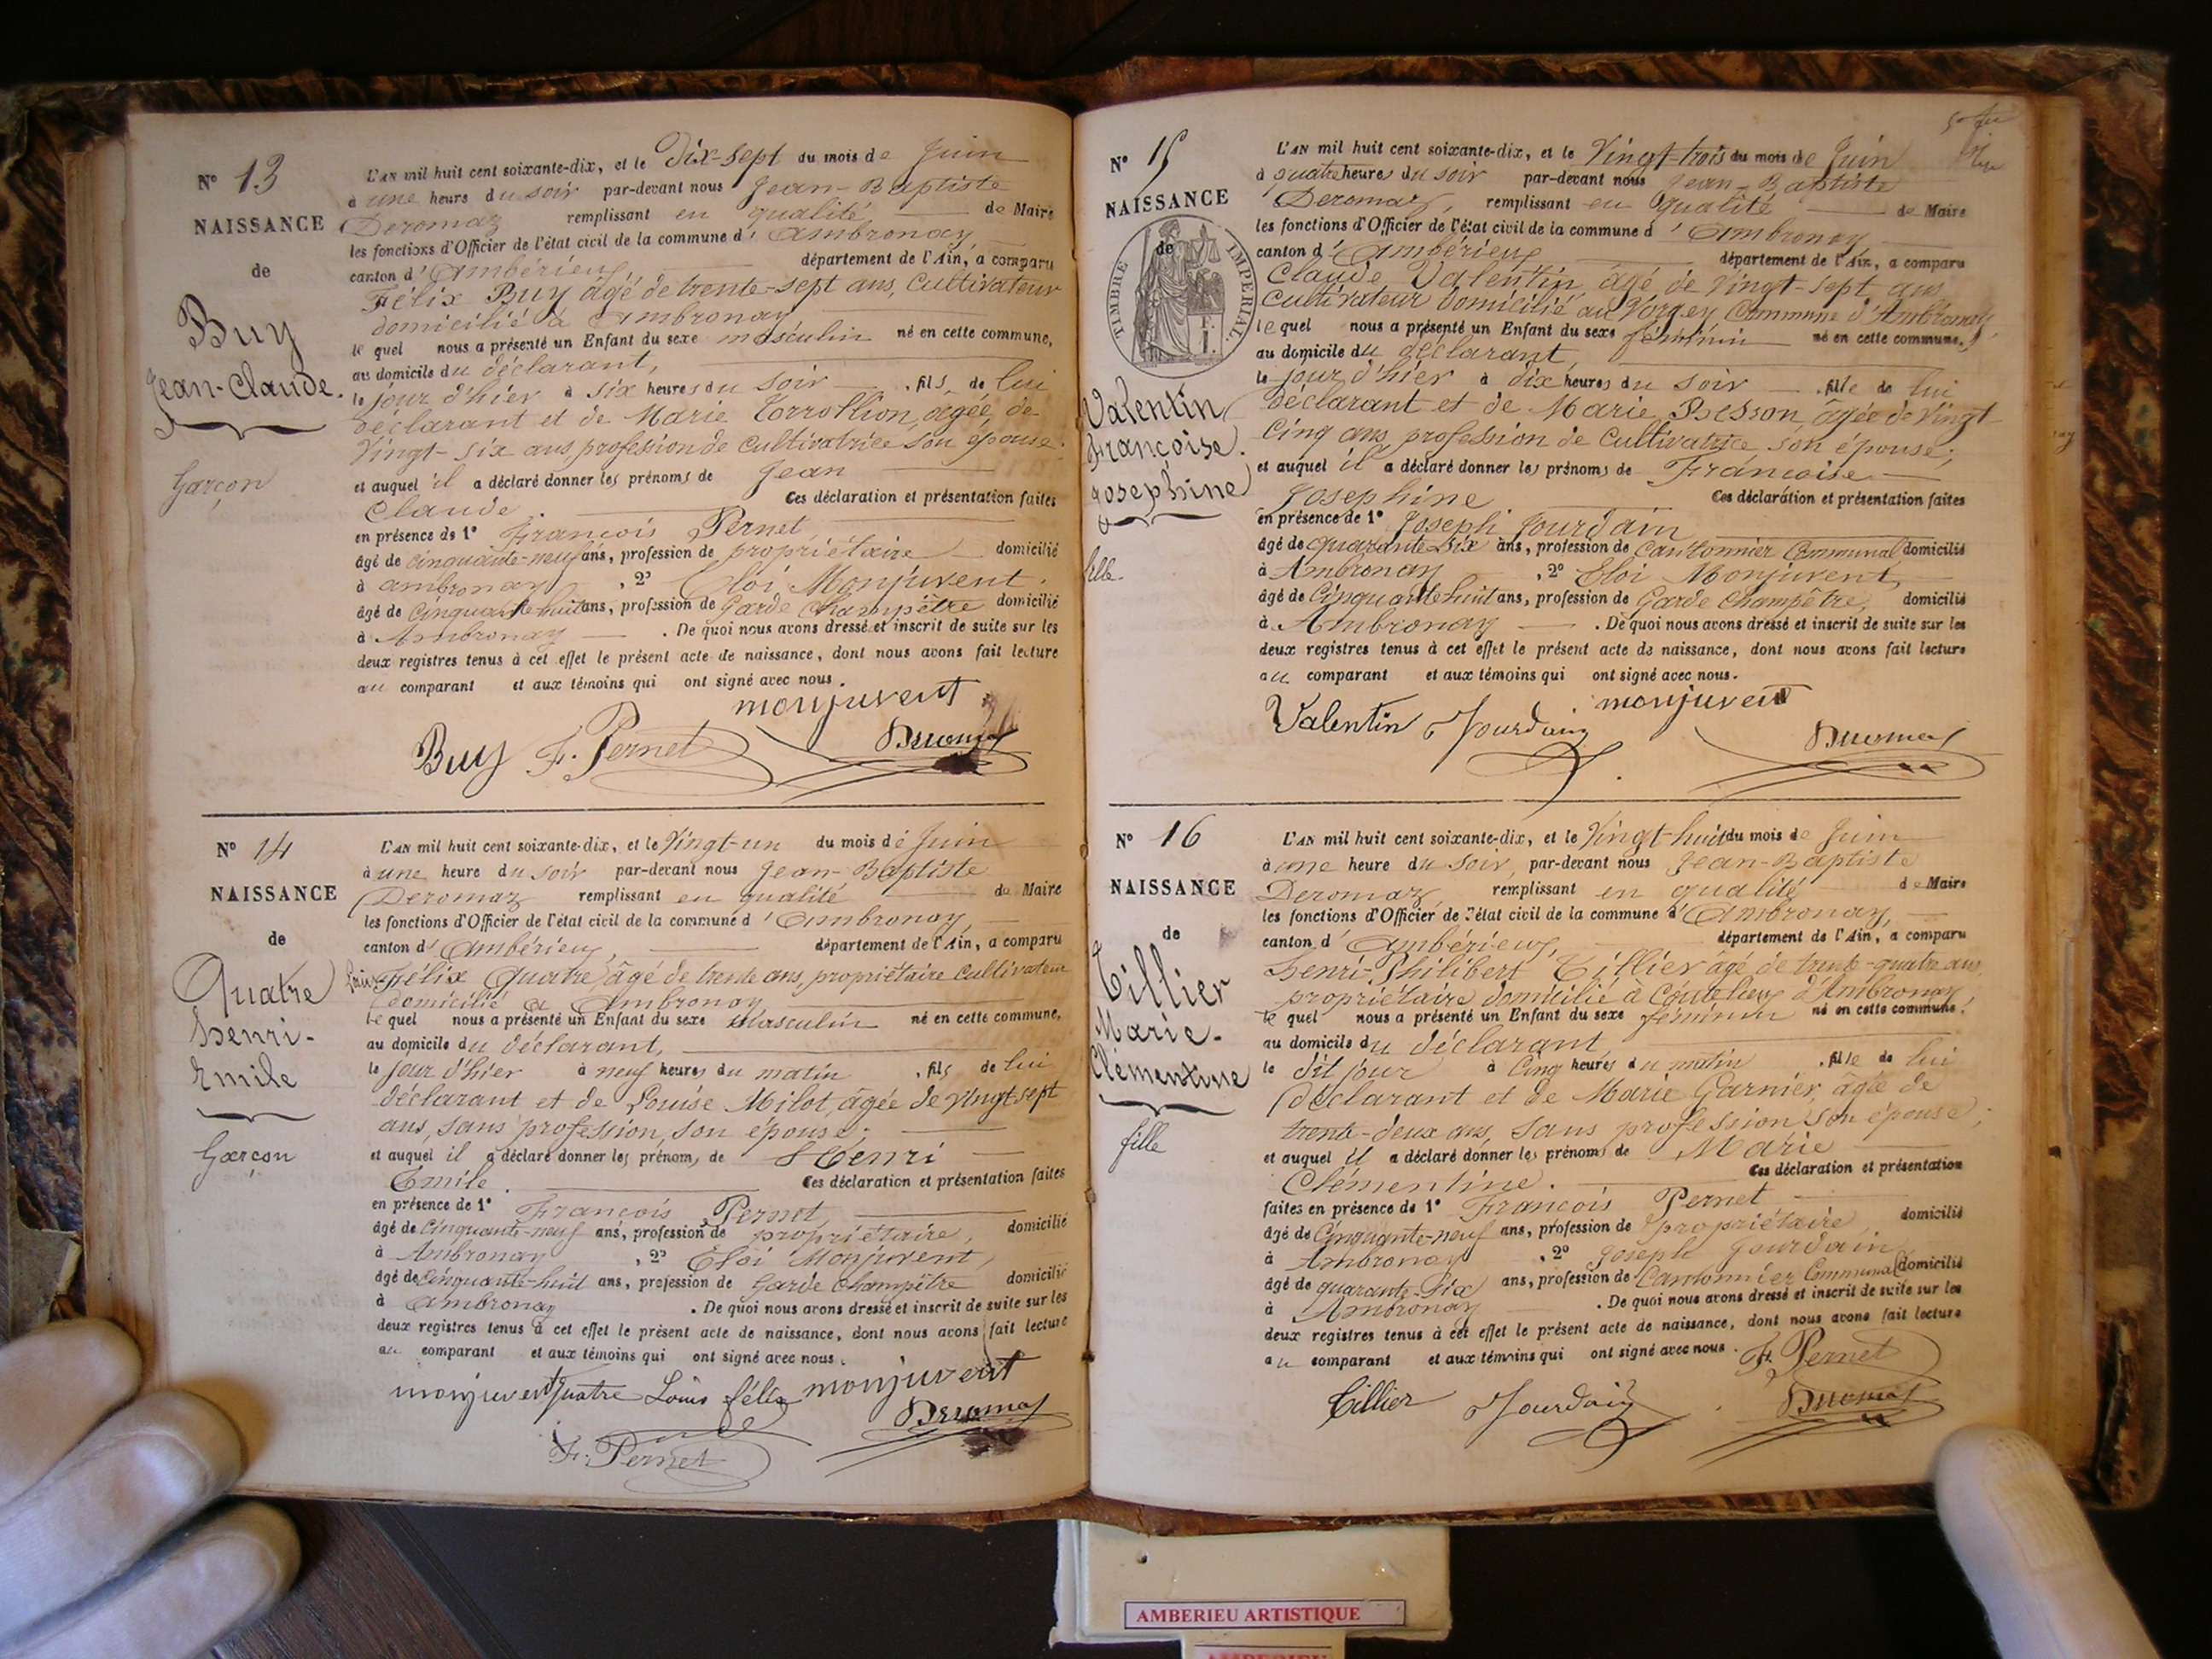 N° 13
NAISSANCE
de
Buy
Jean-Claude.
Garçon
L'AN mil huit cent soixante-dix, et le Dix-sept du mois de Juin
à une heure du soir par-devant nous Jean-Baptiste
Deromaz remplissant en qualité de Maire
les fonctions d'Officier de l'état civil de la commune d'Ambronay
canton d'Ambérieu, département de l'Ain, a comparu
Félix Buy âgé de trente-sept ans, Cultivateur
domicilié à Ambronay
lequel nous a présenté un Enfant du sexe masculin né en cette commune,
au domicile du déclarant,
le jour d'hier à six heures du soir, fils de lui
déclarant et de Marie âgée de
Vingt-six ans, profession de Cultivatrice son épouse.
et auquel il a déclaré donner les prénoms de Jean
Claude. Ces déclaration et présentation faites
en présence de 1° François Pernet,
âgé de cinquante-neuf ans, profession de propriétaire domicilié
à ambronay, 2° Eloi Monjuvent.
âgé de Cinquante huit ans, profession de Garde Champêtre domicilié
à Ambronay. De quoi nous avons dressé et inscrit de suite sur les
deux registres tenus à cet effet le présent acte de naissance, dont nous avons fait lecture
au comparant et aux témoins qui ont signé avec nous.
monjuvent
Buy F. Pernet Deromaz
N° 14
NAISSANCE
de
Quatre
henri-
Emile
Garçon
L'AN mil huit cent soixante-dix, et le Vingt-un du mois de Juin
à une heure du soir par-devant nous Jean-Baptiste
Deromaz remplissant en qualité de Maire
les fonctions d'Officier de l'état civil de la commune d'Ambronay,
canton d'Ambérieu, département de l'Ain, a comparu
Louis Félix Quatre, âgé de trente ans, propriétaire Cultivateur
domicilié à Ambronay
lequel nous a présenté un Enfant du sexe Masculin né en cette commune,
au domicile du déclarant,
le jour d'hier à neuf heures du matin, fils de lui
déclarant et de Louise Milot, âgée de vingt sept
ans, sans profession, son épouse;
et auquel il a déclaré donner les prénoms de Henri
Emile. Ces déclaration et présentation faites
en présence de 1° François Pernet,
âgé de Cinquante-neuf ans, profession de propriétaire, domicilié
à Ambronay, 2° Eloi Monjuvent,
âgé de Cinquante-huit ans, profession de Garde Champêtre domicilié
à Ambronay. De quoi nous avons dressé et inscrit de suite sur les
deux registres tenus à cet effet le présent acte de naissance, dont nous avons fait lecture
au comparant et aux témoins qui ont signé avec nous.
monjuvent Quatre Louis félix monjuvent
Deromaz
F. Pernet
N° 15
NAISSANCE
de
TIMBRE IMPERIAL
Valentin
Françoise.
Josephine
fille.
L'AN mil huit cent soixante-dix, et le Vingt-trois du mois de Juin
à quatre heures du soir par-devant nous Jean-Baptiste
Deromaz, remplissant en qualité de Maire
les fonctions d'Officier de l'état civil de la commune d'Ambronay
canton d'Ambérieu, département de l'Ain, a comparu
Claude Valentin âgé de Vingt-sept ans
Cultivateur domicilié au Vorgey Commune d'Ambronay,
lequel nous a présenté un Enfant du sexe féminin né en cette commune,
au domicile du déclarant,
le jour d'hier à dix heures du soir, fille de lui
déclarant et de Marie Besson, âgée de Vingt
Cinq ans, profession de Cultivatrice son épouse;
et auquel il a déclaré donner les prénoms de Françoise
Josephine Ces déclaration et présentation faites
en présence de 1° Joseph Jourdain
âgé de quarante Six ans, profession de Cantonnier Communal domicilié
à Ambronay, 2° Eloi Monjuvent,
âgé de Cinquante huit ans, profession de Garde Champêtre, domicilié
à Ambronay. De quoi nous avons dressé et inscrit de suite sur les
deux registres tenus à cet effet le présent acte de naissance, dont nous avons fait lecture
au comparant et aux témoins qui ont signé avec nous.
Valentin Jourdain monjuvent
Deromaz
N° 16
NAISSANCE
de
Tillier
Marie-
Clémentine
fille
L'AN mil huit cent soixante-dix, et le Vingt-huit du mois de Juin
à une heure du soir, par-devant nous Jean-Baptiste
Deromaz, remplissant en qualité de Maire
les fonctions d'Officier de l'état civil de la commune d'Ambronay,
canton d'Ambérieu, département de l'Ain, a comparu
henri-Philibert Tillier âgé de trente-quatre ans,
propriétaire domicilié à Coutelieu d'Ambronay,
le quel nous a présenté un Enfant du sexe féminin né en cette commune,
au domicile du déclarant
le dit jour à Cinq heures du matin, fille de lui
déclarant et de Marie Garnier, âgée de
trente-deux ans, Sans profession Son épouse;
et auquel il a déclaré donner les prénoms de Marie
Clémentine. Ces déclaration et présentation
faites en présence de 1° François Pernet
âgé de Cinquante-neuf ans, profession de propriétaire, domicilié
à Ambronay, 2° Joseph Jourdain
âgé de quarante-Six ans, profession de Cantonnier Communal domicilié
à Ambronay. De quoi nous avons dressé et inscrit de suite sur les
deux registres tenus à cet effet le présent acte de naissance, dont nous avons fait lecture
au comparant et aux témoins qui ont signé avec nous. F. Pernet
Tillier Jourdain Deromaz
AMBERIEU ARTISTIQUE
AMBERIEU